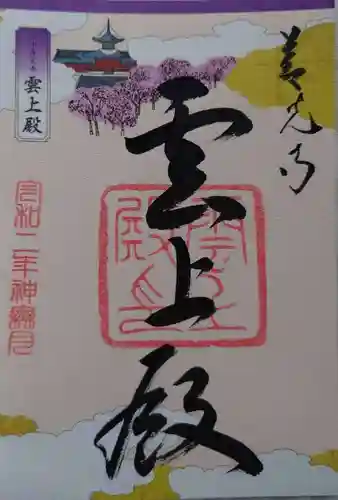 善光寺
雲上殿
雲上殿
雲上殿
令和二年神無月